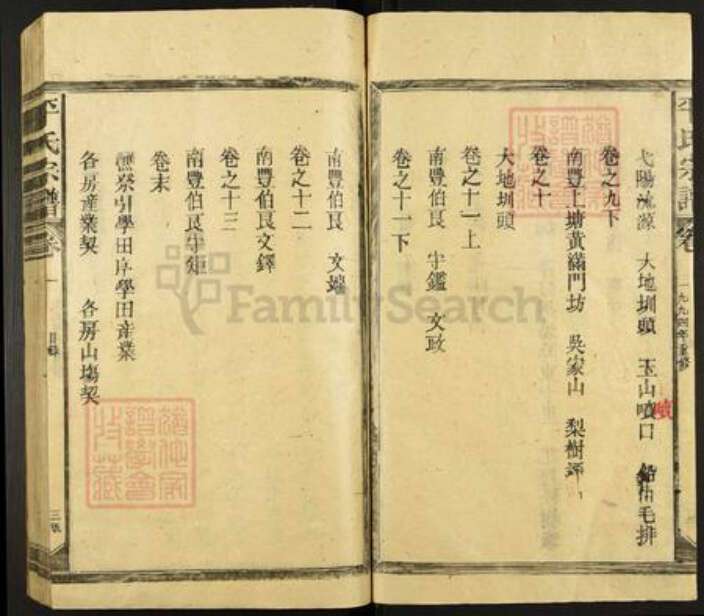 弋陽洮源 大地圳頭 玉山噴口 鉛山毛排
噴
卷之九下
南豐上塘黃滿門坊 吳家山 梨樹源
卷之十
大地圳頭
卷之十一上
南豐伯良 宇鑑 文政
卷之十一下
南豐伯良 文端
卷之十二
南豐伯良文鐸
卷之十三
南豐伯良宇矩
卷末
醮祭引學田序學田産業
各房産業契 各房山塲契
李氏宗譜 卷一 目錄 三張
李氏宗譜 卷 一九九四年重修
FamilySearch